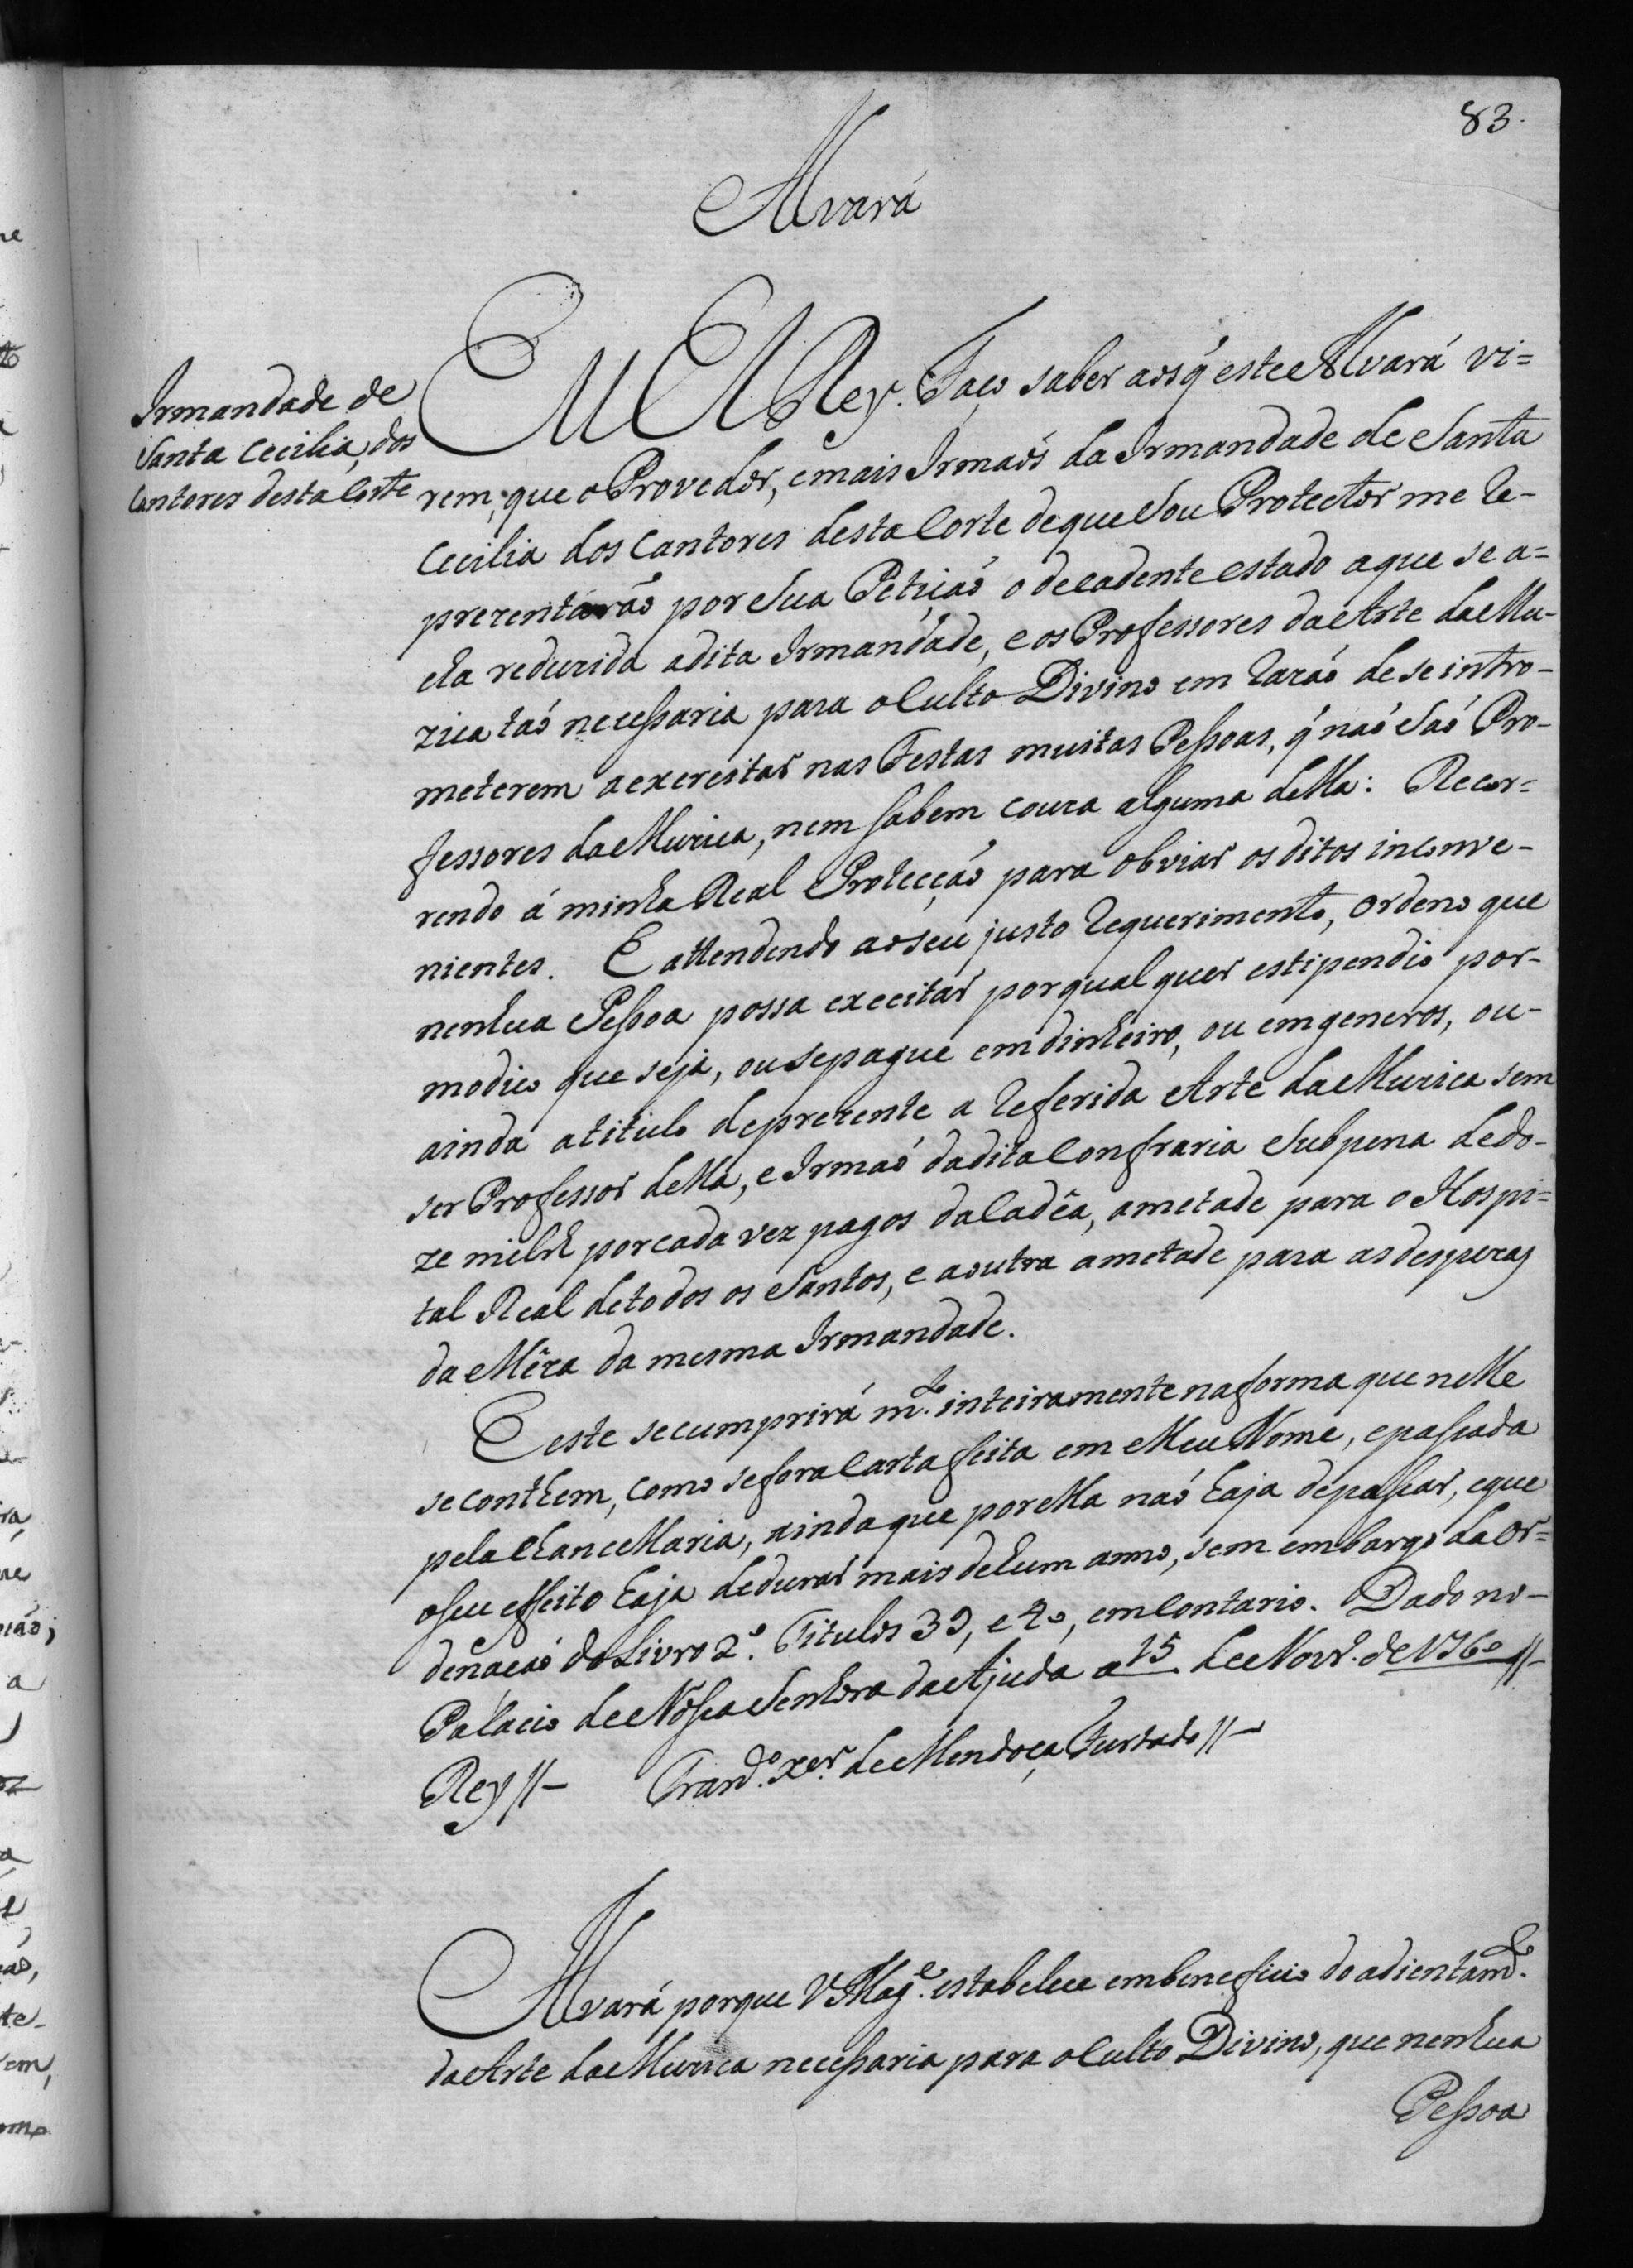 83.
Alvará
Irmandade de
Santa Cecilia, dos
Cantores desta Corte
Eu ElRey. Faço saber aos q̃ este Alvará vi=
rem, que o Provedor, e mais Irmaõs da Irmandade de Santa
Cecilia dos Cantores desta Corte de que Sou Protector me re-
prezentáraõ por Sua Petiçaõ o decadente estado a que se a=
cha reduzida a dita Irmandade, e os Professores da Arte da Mu-
zica taõ necessaria para o Culto Divino em razaõ de se intro-
meterem a exercitar nas Festas muitas Pessoas, q̃ naõ Saõ Pro-
fessores da Muzica, nem sabem couza alguma della: Recor=
rendo á minha Real Protecçaõ para obviar os ditos inconve-
nientes. E attendendo ao seu justo requerimento, ordeno que
nenhua Pessoa possa execitar por qual quer estipendio por-
modico que seja, ou se pague em dinheiro, ou em generos, ou-
ainda a titulo de prezente a referida Arte da Muzica sem
ser Professor della, e Irmaõ da dita Confraria Subpena de do-
ze mil rs̃ por cada vez pagos da Cadêa, ametade para o Hospi=
tal Real de todos os Santos, e a outra ametade para as despezas
da Mêza da mesma Irmandade.
E este se cumprirá m.to inteiramente na forma que nelle
se conthem, como se fora Carta feita em Meu Nome, e passada
pela Chancellaria, ainda que por ella naõ haja de passar, e que
o seu effeito haja de durar mais de hum anno, sem embargo da Or=
denaçaõ do Livro 2.º Titulos 39, e 40, em Contario. Dado no-
Palacio de Nossa Senhora da Ajuda a 15 de Novr.º de 1760 //-
Rey //- Fran.co Xer. de Mendoça Furtado //-
Alvará porque V. Mag.e estabelece em beneficio do adientam.to
da Arte da Muzica necessaria para o Culto Divino, que nenhua
Pessoa